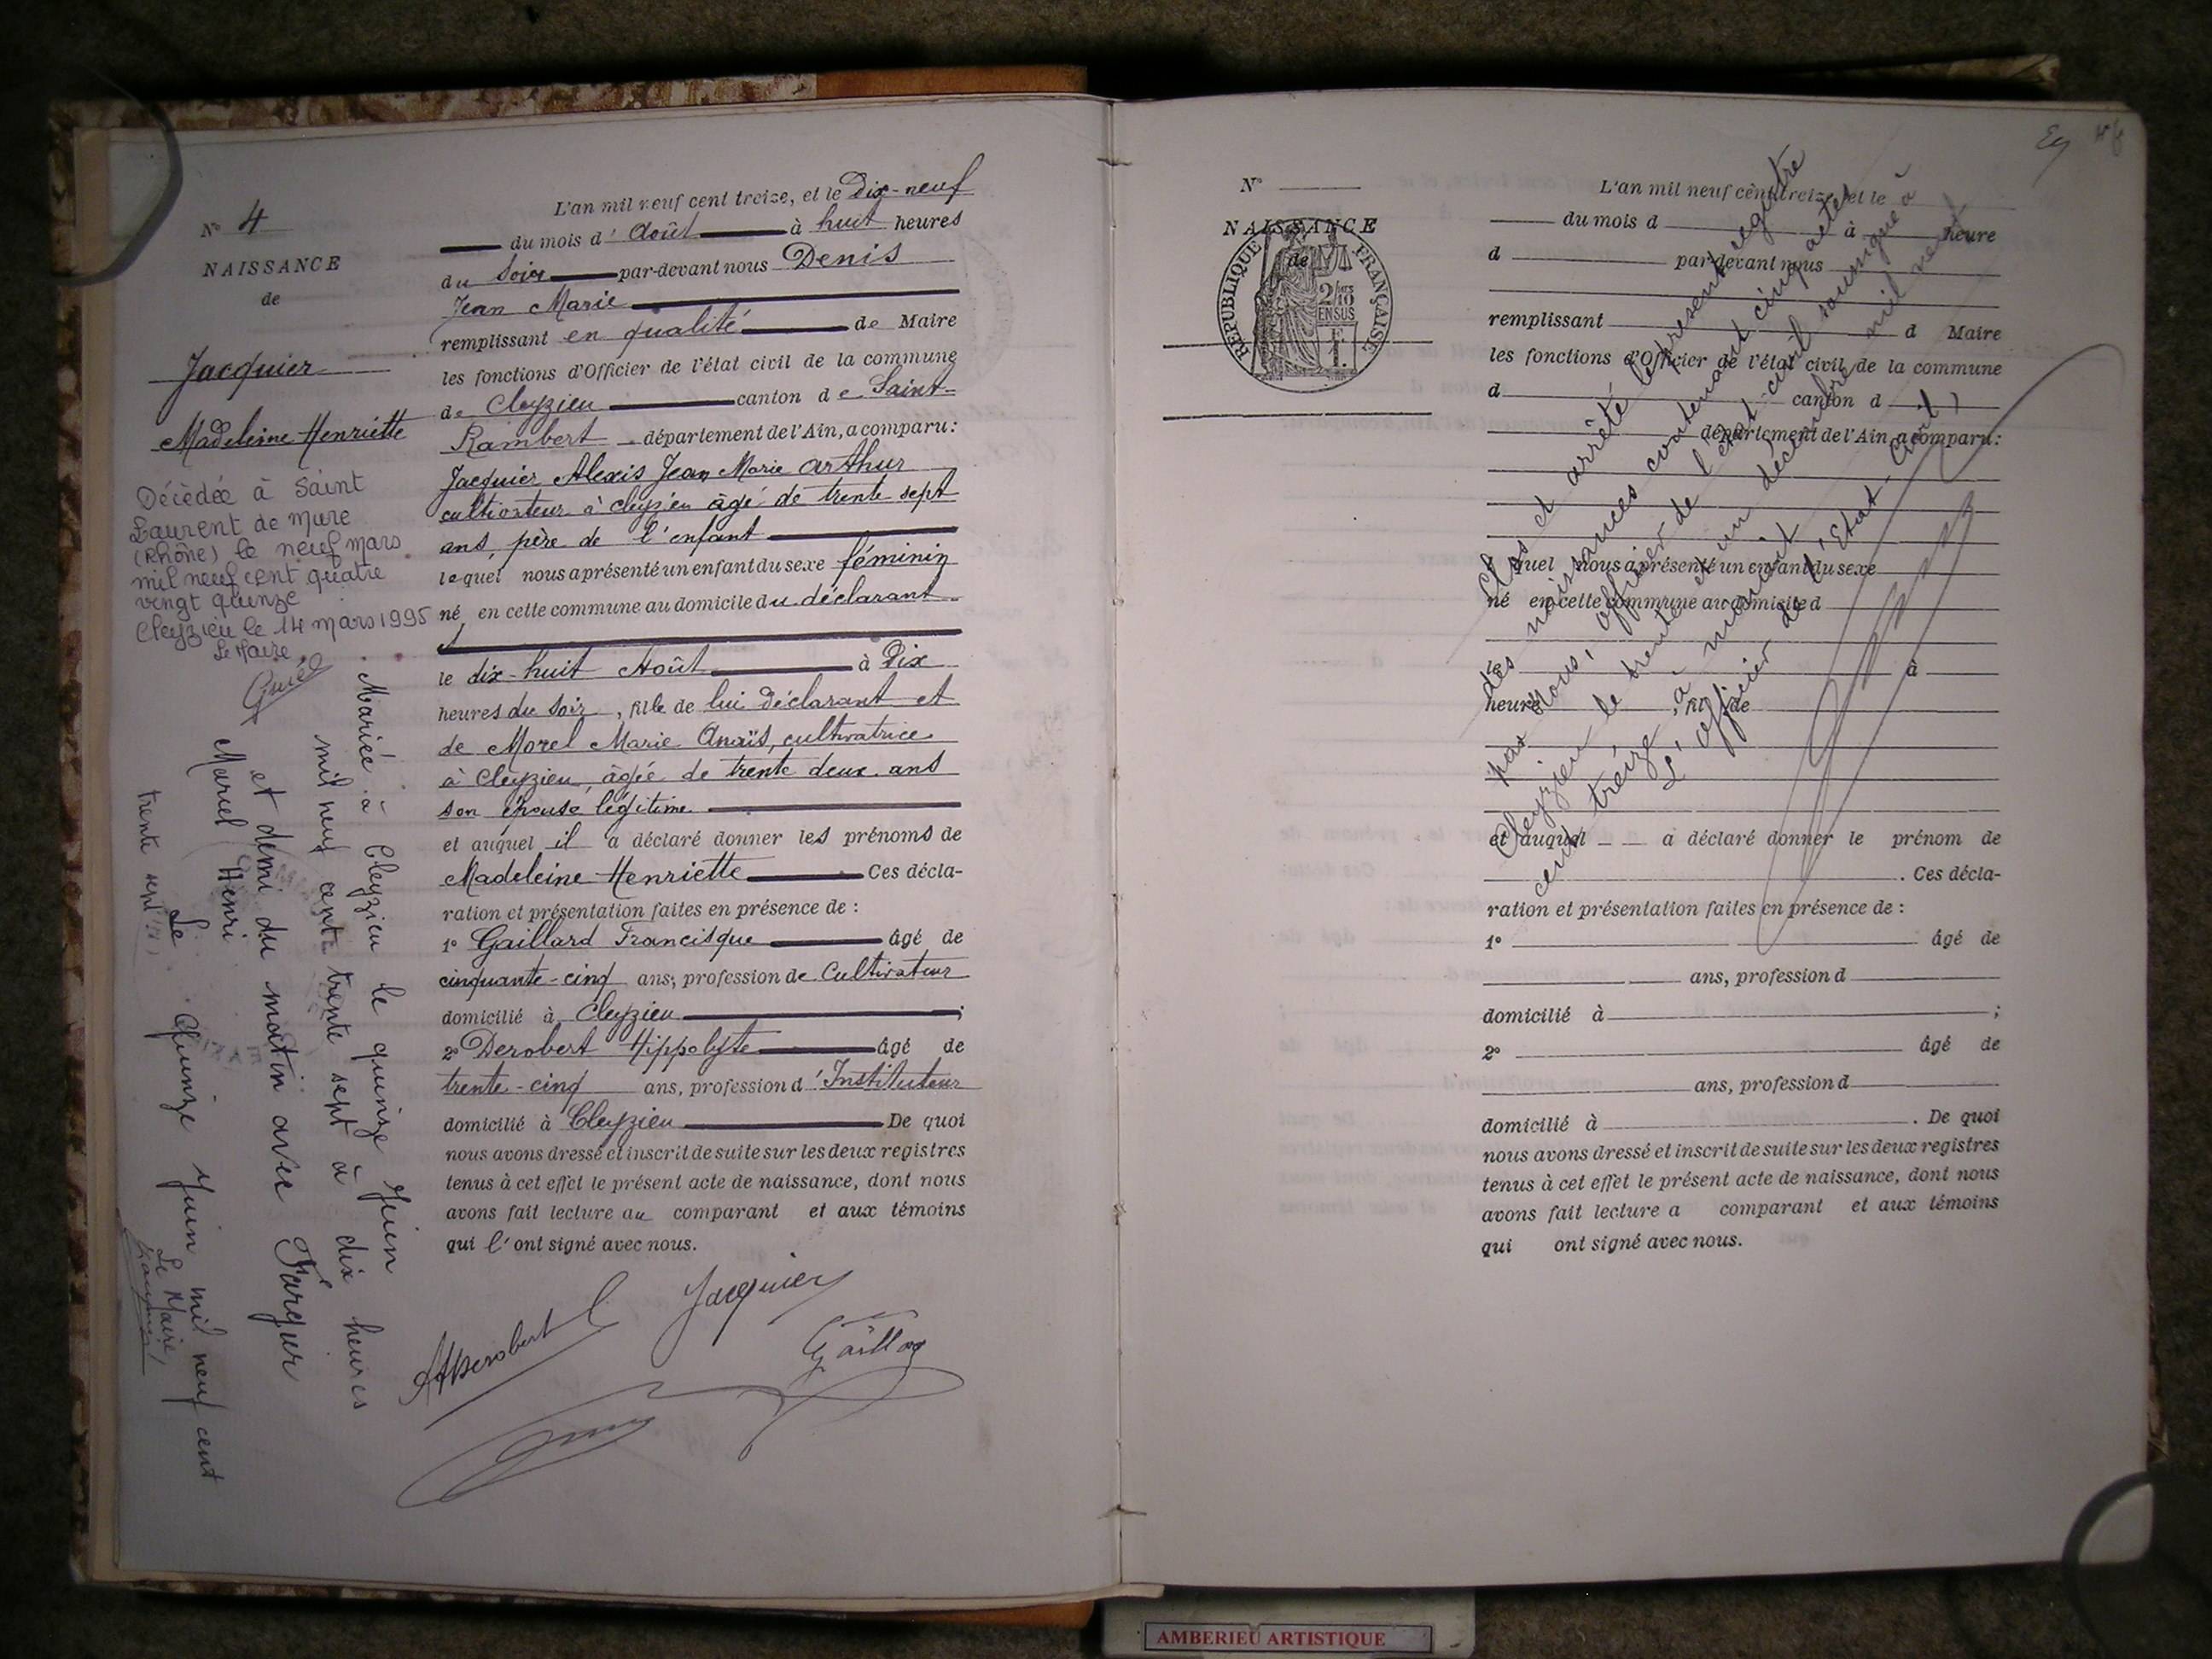 N° 4
NAISSANCE
de
Jacquier
Madeleine Henriette
Décédée à Saint
Laurent de Mure
(Rhône) le neuf mars
mil neuf cent quatre
vingt quinze
Cleyzieu le 14 mars 1995
Le Maire
Mariée à Cleyzieu le quinze Juin
mil neuf cent trente sept à dix heures
et demi du matin avec Farquer
Marcel Henri
Le Quinze Juin mil neuf cent
trente sept
Le Maire
L'an mil neuf cent treize, et le Dix-neuf
du mois d'Août à huit heures
du Soir par-devant nous Denis
Jean Marie
remplissant en qualité de Maire
les fonctions d'Officier de l'état civil de la commune
de Cleyzieu canton de Saint-
Rambert département de l'Ain, a comparu:
Jacquier Alexis Jean Marie Arthur
cultivateur à Cleyzieu âgé de trente sept
ans, père de l'enfant
lequel nous a présenté un enfant du sexe féminin
né en cette commune au domicile du déclarant
le dix-huit Août à Dix
heures du Soir, fille de lui Déclarant et
de Morel Marie Anaïs, cultivatrice
à Cleyzieu, âgée de trente deux ans
son épouse légitime
et auquel il a déclaré donner les prénoms de
Madeleine Henriette Ces décla-
ration et présentation faites en présence de :
1° Gaillard Francisque âgé de
cinquante-cinq ans, profession de Cultivateur
domicilié à Cleyzieu ;
2° Derobert Hippolyte âgé de
trente-cinq ans, profession d'Instituteur
domicilié à Cleyzieu De quoi
nous avons dressé et inscrit de suite sur les deux registres
tenus à cet effet le présent acte de naissance, dont nous
avons fait lecture au comparant et aux témoins
qui l'ont signé avec nous.
Jacquier
Derobert
Gaillard
N°
NAISSANCE
de
RÉPUBLIQUE FRANÇAISE
2/10
EN SUS
L'an mil neuf cent treize, et le
du mois d à heure
d par-devant nous
remplissant d Maire
les fonctions d'Officier de l'état civil de la commune
d canton d
département de l'Ain, a comparu:
lequel nous a présenté un enfant du sexe
né en cette commune au domicile d
le à
heure , fil de
et auquel a déclaré donner le prénom de
. Ces décla-
ration et présentation faites en présence de :
1° âgé de
ans, profession d
domicilié à ;
2° âgé de
ans, profession d
domicilié à . De quoi
nous avons dressé et inscrit de suite sur les deux registres
tenus à cet effet le présent acte de naissance, dont nous
avons fait lecture a comparant et aux témoins
qui ont signé avec nous.
Clos et arrêté le présent registre
des naissances contenant cinq actes
par Nous, officier de l'état-civil soussigné à
Cleyzieu le trente et un décembre mil neuf
cent treize à minuit
L'officier de l'Etat-Civil,
AMBERIEU ARTISTIQUE